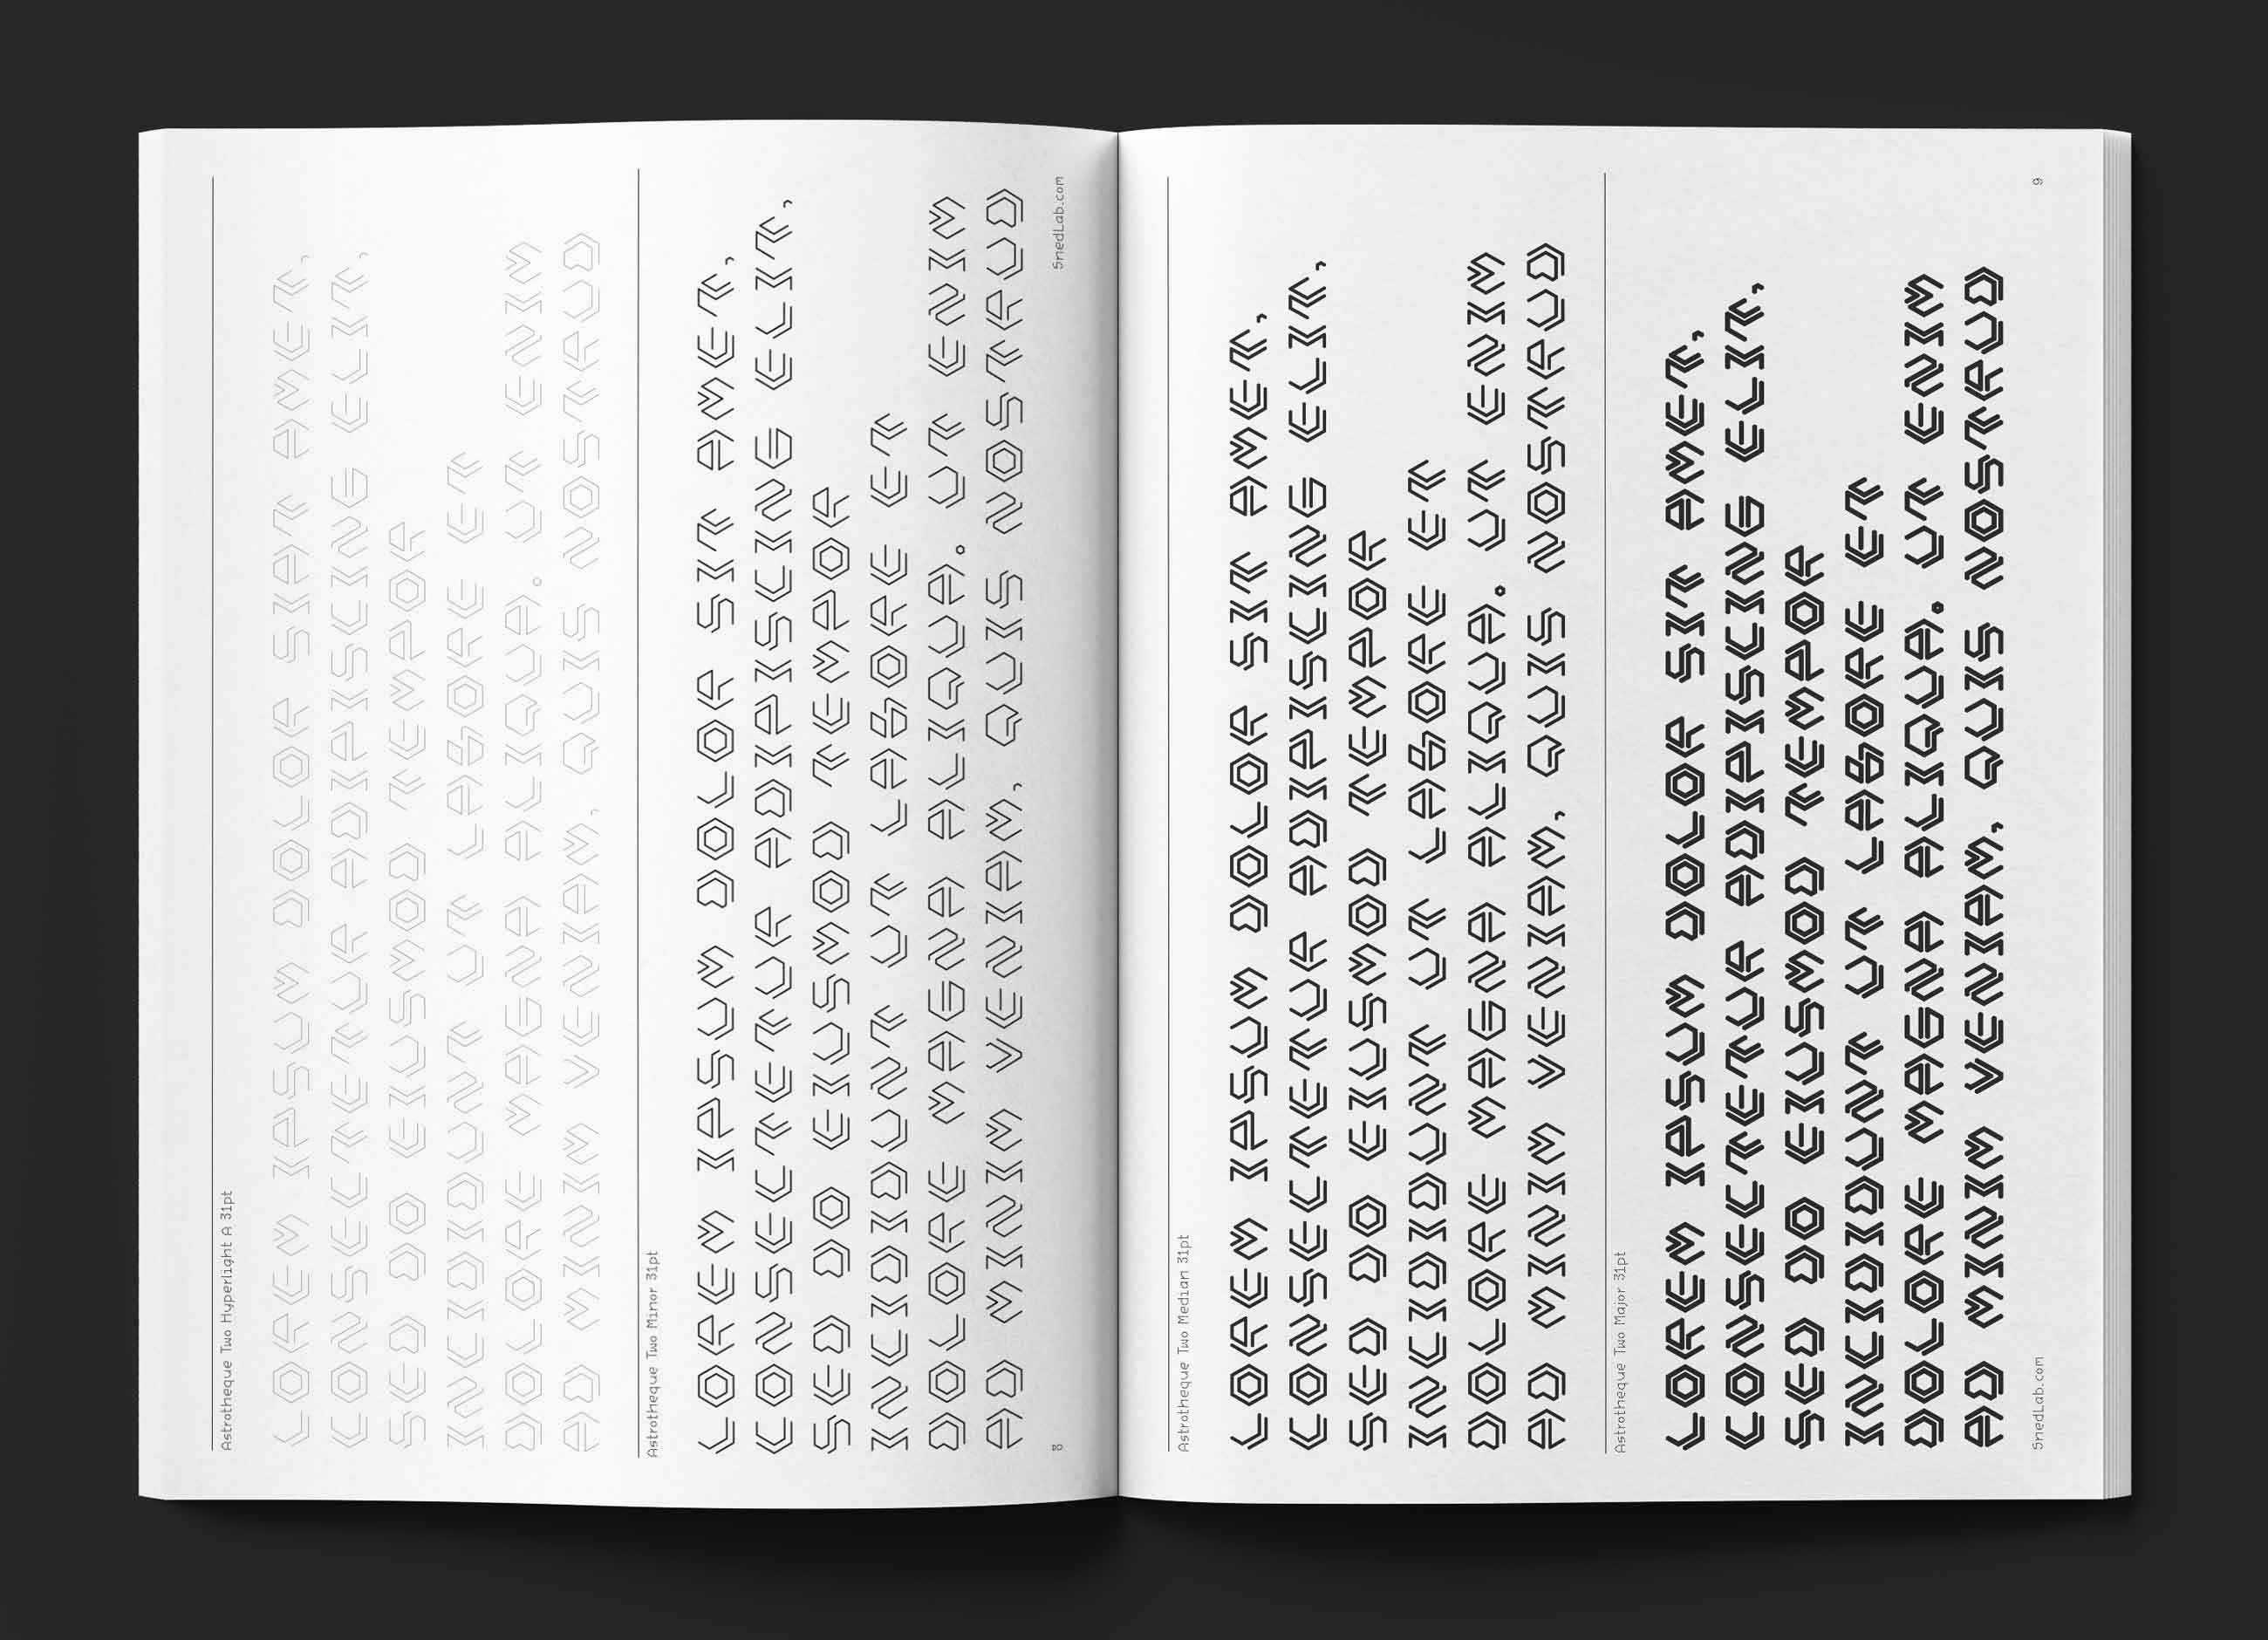 Astrotheque Two Hyperlight A 31pt
LOREM IPSUM DOLOR SIT AMET,
CONSECTETUR ADIPISCING ELIT,
SED DO EIUSMOD TEMPOR
INCIDIDUNT UT LABORE ET
DOLORE MAGNA ALIQUA. UT ENIM
AD MINIM VENIAM, QUIS NOSTRUD
Astrotheque Two Minor 31pt
LOREM IPSUM DOLOR SIT AMET,
CONSECTETUR ADIPISCING ELIT,
SED DO EIUSMOD TEMPOR
INCIDIDUNT UT LABORE ET
DOLORE MAGNA ALIQUA. UT ENIM
AD MINIM VENIAM, QUIS NOSTRUD
8 SnedLab.com
Astrotheque Two Median 31pt
LOREM IPSUM DOLOR SIT AMET,
CONSECTETUR ADIPISCING ELIT,
SED DO EIUSMOD TEMPOR
INCIDIDUNT UT LABORE ET
DOLORE MAGNA ALIQUA. UT ENIM
AD MINIM VENIAM, QUIS NOSTRUD
Astrotheque Two Major 31pt
LOREM IPSUM DOLOR SIT AMET,
CONSECTETUR ADIPISCING ELIT,
SED DO EIUSMOD TEMPOR
INCIDIDUNT UT LABORE ET
DOLORE MAGNA ALIQUA. UT ENIM
AD MINIM VENIAM, QUIS NOSTRUD
SnedLab.com 9